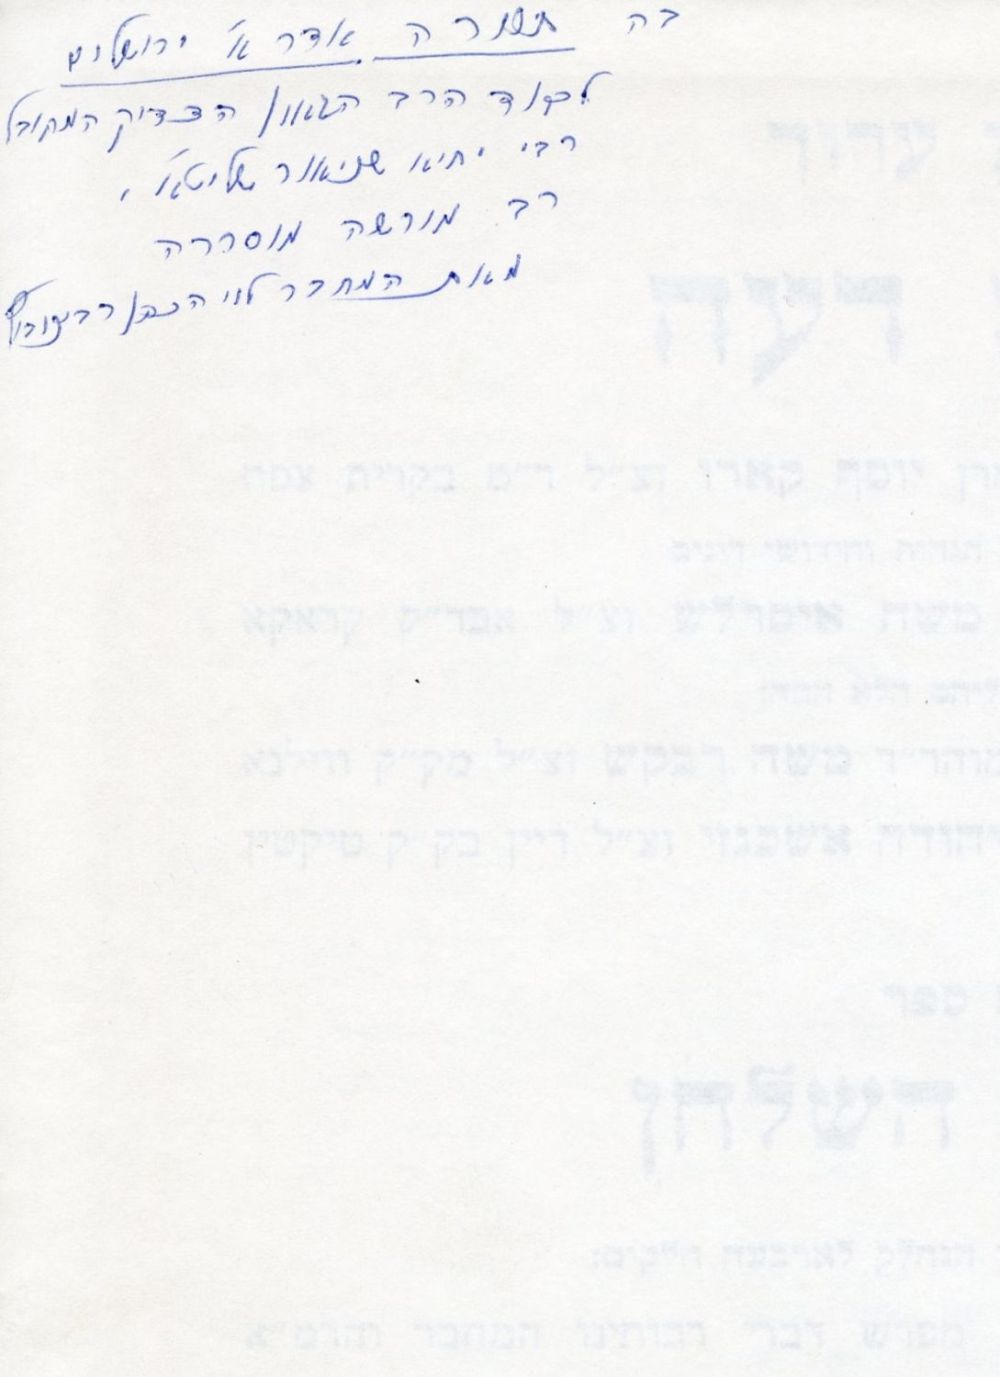 בה תשורה אדר א׳ ירושלים
לכבוד הרב הגאון הצדיק המקובל
רבי יחיא שניאור שליט״א ,
רב מורשה מוסררה
מאת המחבר לוי הכהן רבינוביץ
ערוך
דעה
יוסף קארו זצ״ל ר״מ בקרית צפת
הגהות וחידושי דינים
משה איסרלש זצ״ל אבד״ק קראקא
הלא המה
משה רבקש זצ״ל מק״ק ווילנא
אשכנזי זצ״ל דיין בק״ק טיקטין
ספר
השלחן
הנחלק לארבעה חלקים:
מפרש דברי רבותינו המחבר והרמ״א